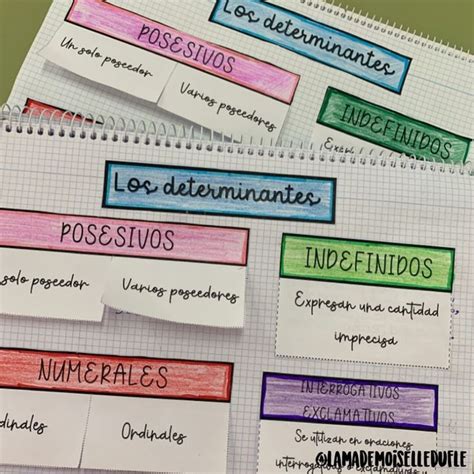 Los determinantes
POSESIVOS
Un solo poseedor
Varios poseedores
INDEFINIDOS
Los determinantes
POSESIVOS
solo poseedor
Varios poseedores
INDEFINIDOS
Expresan una cantidad
imprecisa
NUMERALES
Ordinales
INTERROGATIVOS
EXCLAMATIVOS
Se utilizan en oraciones
interrogativas o exclamativas
@LAMADEMOISELLEDUELE